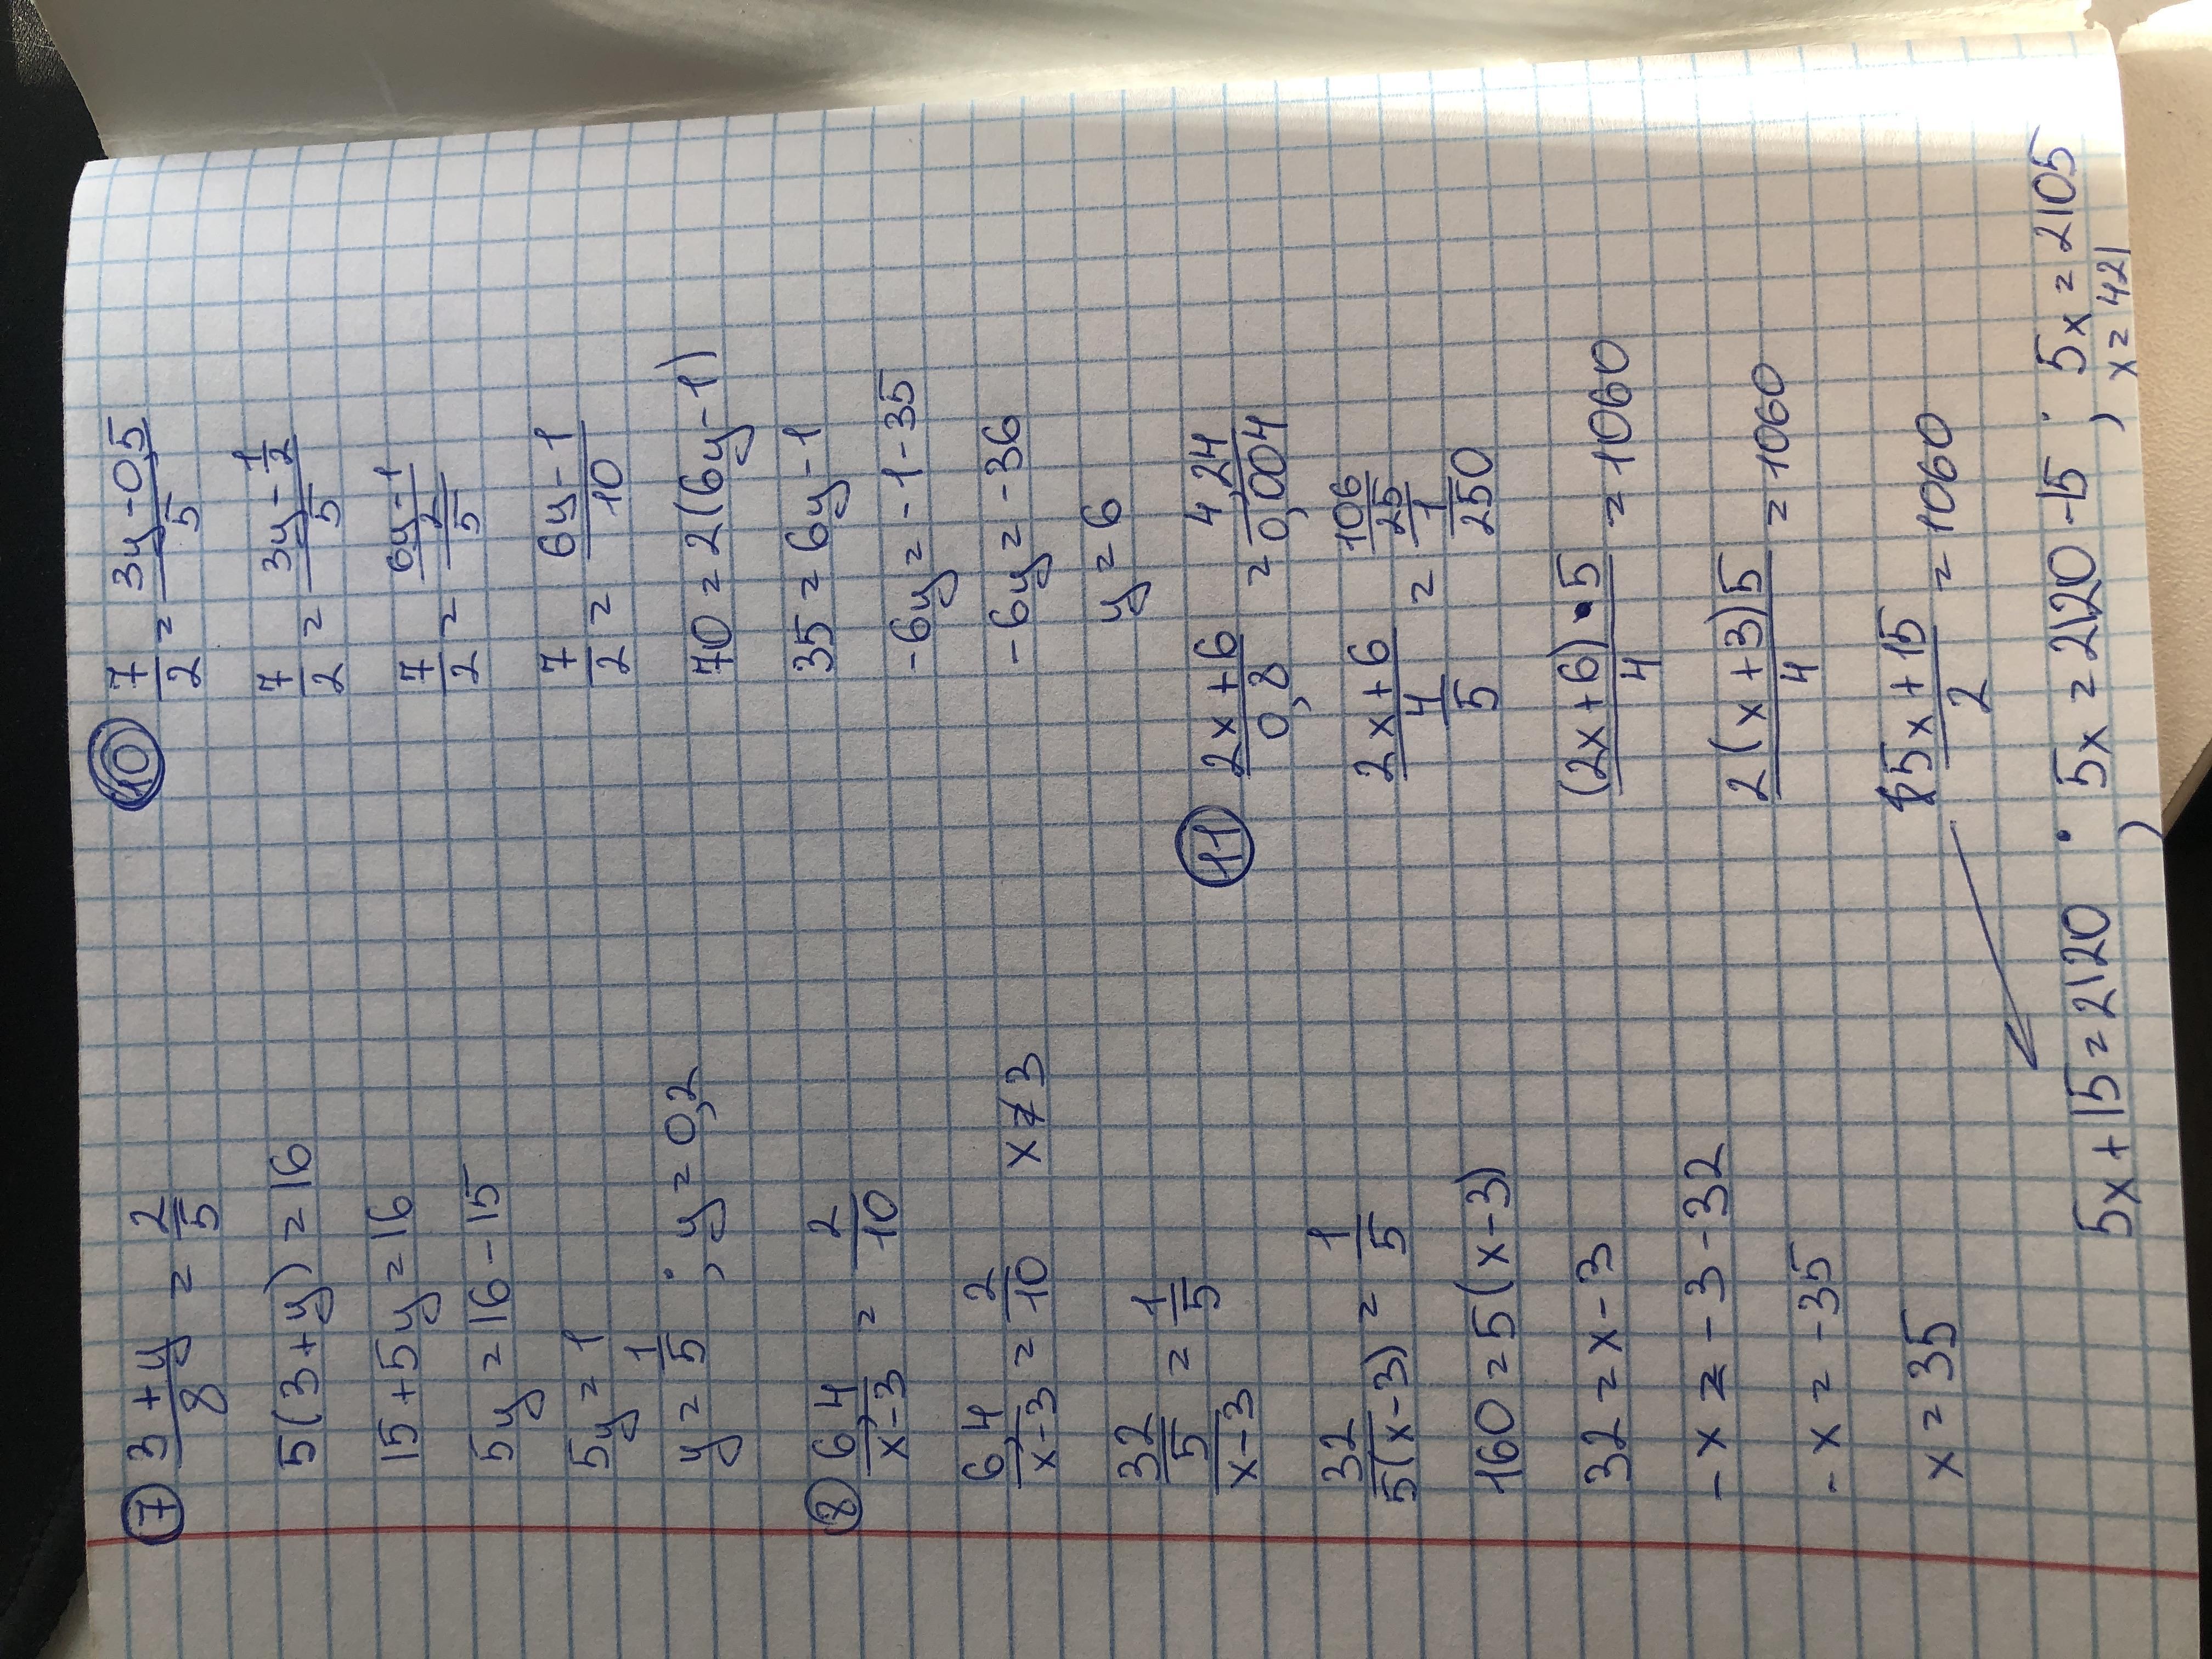 ⑦ (3+y)/8 = 2/5
5(3+y) = 16
15+5y = 16
5y = 16-15
5y = 1
y = 1/5 ; y = 0,2
⑧ 6,4/(x-3) = 2/10
6,4/(x-3) = 2/10 x≠3
(32/5)/(x-3) = 1/5
32/(5(x-3)) = 1/5
160 = 5(x-3)
32 = x-3
-x = -3-32
-x = -35
x = 35
⑩ 7/2 = (3y-0,5)/5
7/2 = (3y-1/2)/5
7/2 = ((6y-1)/2)/5
7/2 = (6y-1)/10
70 = 2(6y-1)
35 = 6y-1
-6y = -1-35
-6y = -36
y = 6
⑪ (2x+6)/0,8 = 4,24/0,004
(2x+6)/(4/5) = (106/25)/(1/250)
((2x+6)·5)/4 = 1060
(2(x+3)5)/4 = 1060
(5x+15)/2 = 1060
5x+15 = 2120 ; 5x = 2120-15 ; 5x = 2105
x = 421